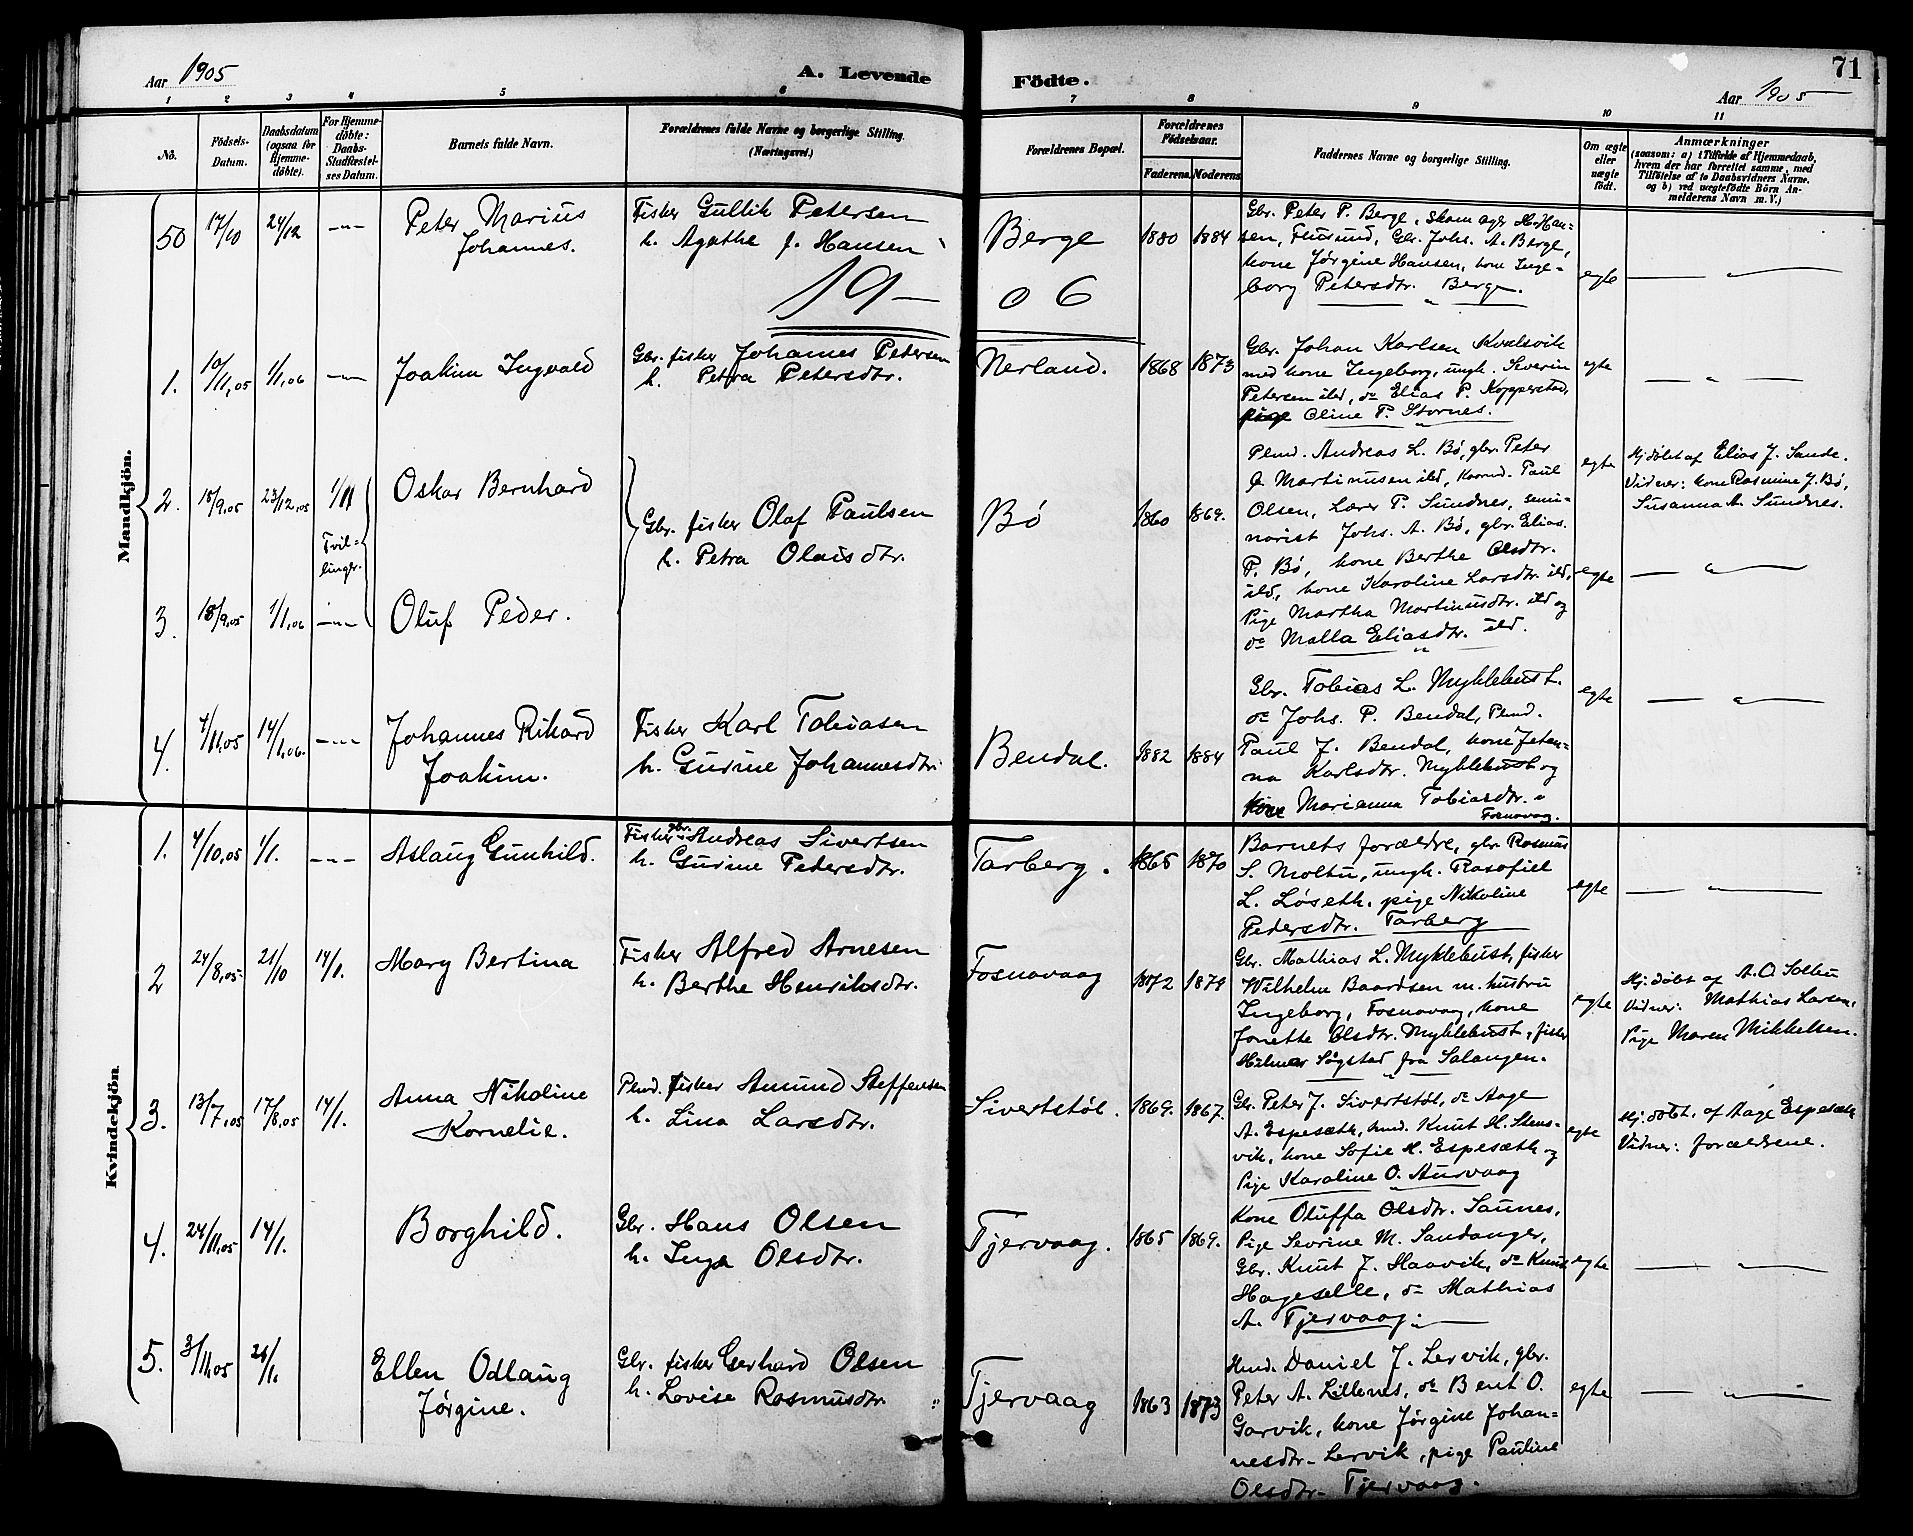 Aar 1905
A. Levende
Födte.
71
Aar 1905
1 2 3 4 5 6 7 8 9 10 11
No.
Födsels-
Datum.
Daabsdatum
(ogsaa for
Hjemme-
döbte).
For Hjemme-
döbte:
Daabs-
Stadfæstel-
ses Datum.
Barnets fulde Navn.
Forældrenes fulde Navne og borgerlige Stilling.
(Næringsvei.)
Forældrenes Bopæl.
Forældrenes
Födselsaar.
Faderens. Moderens.
Faddernes Navne og borgerlige Stilling.
Om ægte
eller
uægte
födt.
Anmærkninger
(saasom: a) i Tilfælde af Hjemmedaab,
hvem der har forrettet samme, med
Tilföielse af to Daabsvidners Navne,
og b) ved uægtefödte Börn An-
melderens Navn m. V.)
Mandkjön.
50 17/10 24/12 -„-
Peter Marius
Johannes.
Fisker Gullik Petersen
h. Agathe f. Hansen
Berge 1880 1884
Gbr. Peter P. Berge, skomager H. Han-
sen, Flusund, Gbr. Johs. A. Berge,
kone Jørgine Hansen, kone Inge-
borg Petersdtr. Berge.
egte — „ —
19— 06
1. 10/11,05 1/1,06 -„-
Joakim Ingvald
Gbr. fisker Johannes Petersen
h. Petra Petersdtr.
Nerland. 1868 1873
Gbr. Johan Karlsen Kvalsvik
med kone Ingeborg, ungk. Severin
Petersen ild, do Elias P. Kopperstad,
pige Oline P. Stornes.
egte — „ —
2. 18/9,05 23/12,05 1/11
Oskar Bernhard
Tvil-
linger.
Gbr. fisker Olaf Paulsen
h. Petra Olaisdtr.
Bø 1860 1869.
Plmd. Andreas L. Bø, gbr. Peter
J. Martinusen ild, Kaarmd. Paul
Olsen, Lærer P. Sundnes, semi-
narist Johs. A. Bø, gbr. Elias
P. Bø, kone Berthe Olsdtr.
ild, kone Karoline Larsdtr. ild,
Pige Martha Martinusdtr. ild og
do Malla Eliasdtr. ild.
egte
Hj. døbt af Elias J. Sande.
Vidner: kone Rasmine J. Bø,
Susanna A. Sundnes.
3. 18/9,05 1/1,06 -„-
Oluf Peder.
egte — „ —
4. 4/11,05 14/1,06. -„-
Johannes Rikard
Joakim.
Fisker Karl Tobiasen
h. Gurine Johannesdtr.
Bendal. 1882 1884
Gbr. Tobias L. Myklebust.
do Johs. P. Bendal, Plmd.
Paul J. Bendal, kone Jetan-
na Karlsdtr. Myklebust og
kone Marianna Tobiasdtr. „
Fosnavaag.
egte — „ —
Kvindekjön.
1. 4/10,05 1/1. -„-
Aslaug Gunhild.
Fisker gbr. Andreas Sivertsen
h. Gurine Pedersdtr.
Tarberg. 1865 1870
Barnets forældre, gbr. Rasmus
S. Moltu, ungk. Rasofiel
L. Løseth, pige Nikoline
Pedersdtr. Tarberg
egte — „ —
2 24/8,05. 21/10 14/1.
Mary Bertina
Fisker Alfred Arnesen
h. Berthe Henriksdtr.
Fosnavaag 1872 1879
Gbr. Mathias L. Myklebust, fisker
Wilhelm Baardsen m. hustru
Ingeborg, Fosnavaag, kone
Jonette Olsdtr. Myklebust, fisker
Hilmar Søgstad fra Salangen.
egte
Hj. døbt af A. O. Solbu
Vidner: Mathias Larsen,
Pige Maren Mikkelsen.
3. 13/7,05 17/8,05 14/1.
Anna Nikoline
Kornelie.
Plmd. fisker Amund Steffensen
h. Lina Larsdtr.
Sivertstøl. 1869. 1867.
Gbr. Peter J. Sivertstøl, do Aage
A. Espesæth, hmd. Knut H. Stens-
vik, kone Sofie H. Espesæth og
Pige Karoline O. Aurvaag
egte
Hj. døbt. af Aage Espesæth
Vidner: forældrene.
4. 24/11,05 14/1.
Borghild.
Gbr. Hans Olsen
h. Inga Olsdtr.
Tjervaag. 1865 1869.
Kone Oluffa Olsdtr. Saunes,
Pige Sevrine M. Sandanger,
Gbr. Knut J. Haavik, do Knut
Hageselle, do Mathias
A. Tjervaag.
egte — „ —
5. 3/11,05 26/1.
Ellen Odlaug
Jørgine.
Gbr. fisker Gerhard Olsen
h. Lovise Rasmusdtr.
Tjervaag 1863 1873
Hmd. Daniel J. Lervik, gbr.
Peter A. Lillenes, do Bent O.
Garvik, kone Jørgine Johan-
nesdtr. Lervik, pige Pauline
Olsdtr. Tjervaag.
egte — „ —